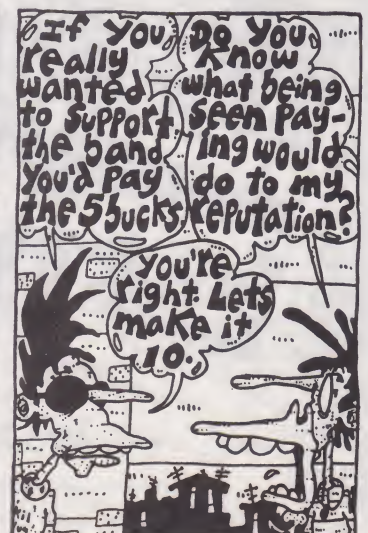 If you
really
wanted
to support
the band
you'd pay
the 5 bucks.
Do you
know
what being
seen pay-
ing would
do to my
reputation?
You're
right. Lets
make it
10.